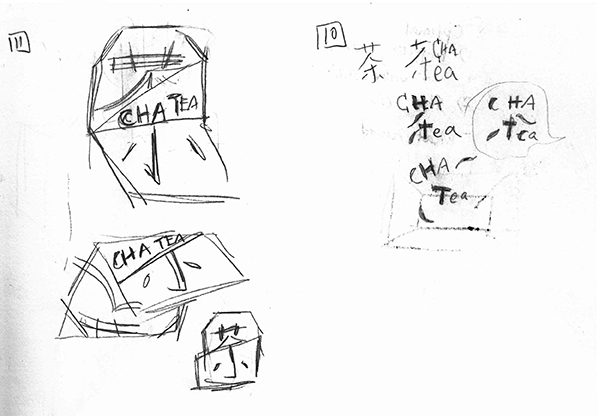 11
CHA TEA
CHA TEA
茶
10
茶 茶CHA
tea
CHA
tea
CHA
tea
CHA
Tea